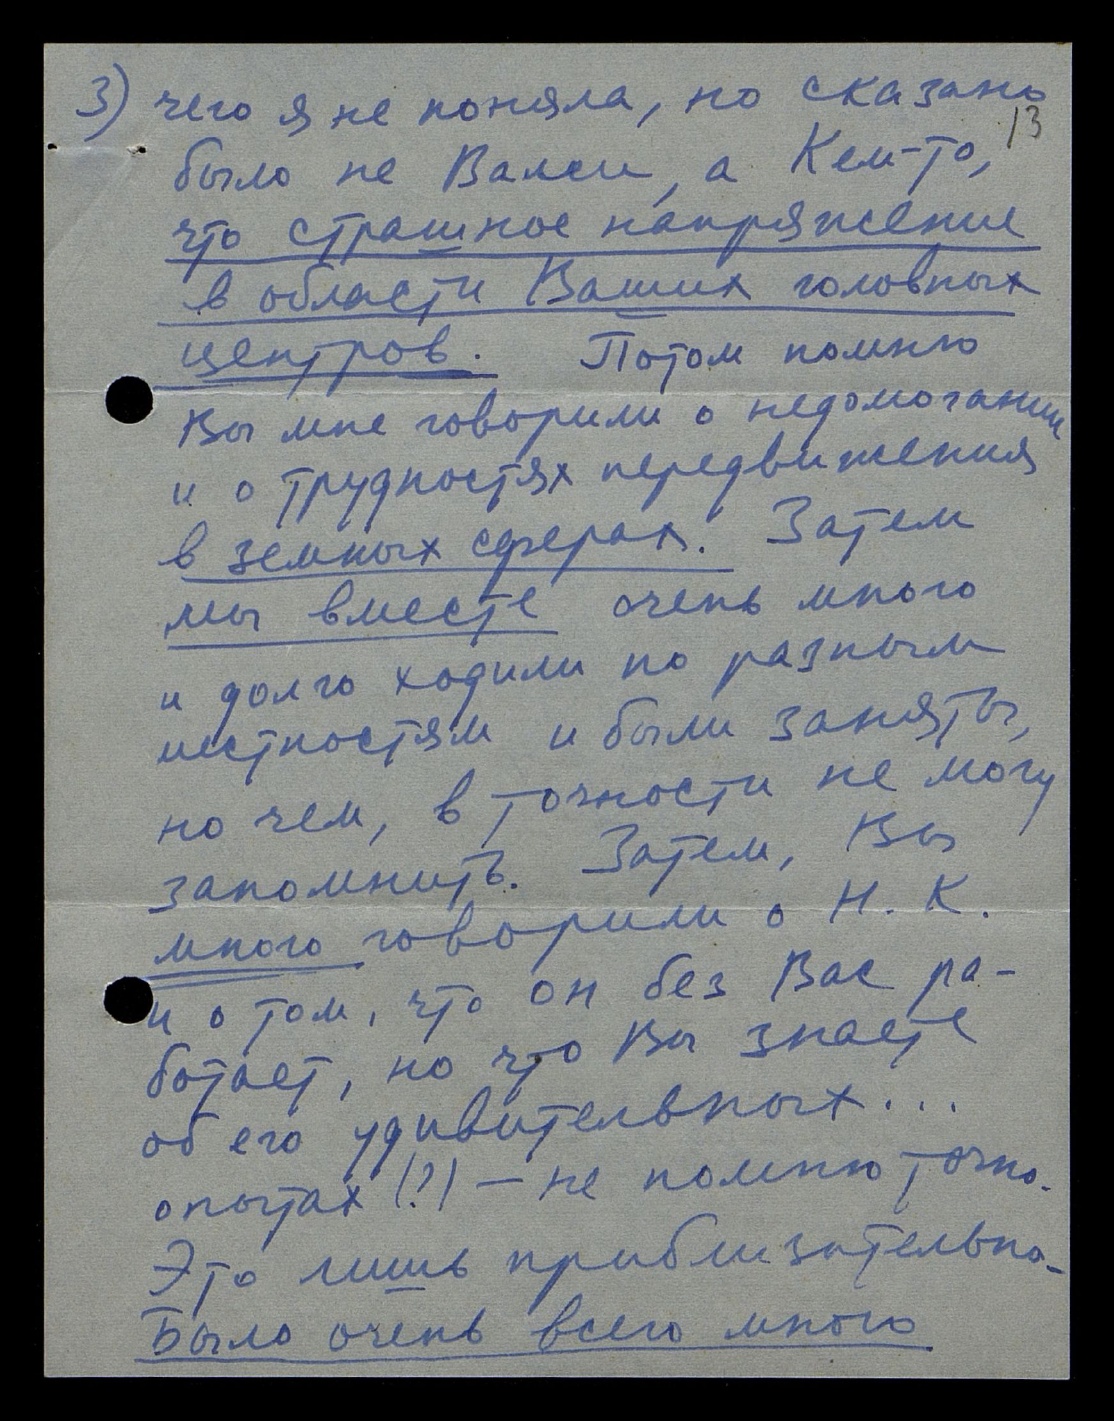 3) чего я не поняла, но сказано
13
было не Вами, а Кем-то,
что страшное напряжение
в области Ваших головных
центров. Потом помню
Вы мне говорили о недомогании
и о трудностях передвижения
в земных сферах. Затем
мы вместе очень много
и долго ходили по разным
местностям и были заняты,
но чем, в точности не могу
запомнить. Затем, Вы
много говорили о Н. К.
и о том, что он без Вас ра-
ботает, но что Вы знаете
об его удивительных...
опытах (?) — не помню точно.
Это лишь приблизительно.
Было очень всего много